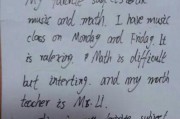 My favorite
music and math. I have music
class on Monday and Friday. It
is relaxing. Math is difficult
but interting. and my math
teacher is Ms. Li.